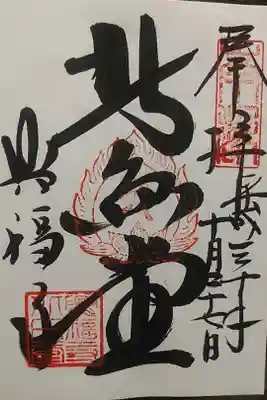 奉拝 平成三十年
十月廿七日
北円堂
興福寺